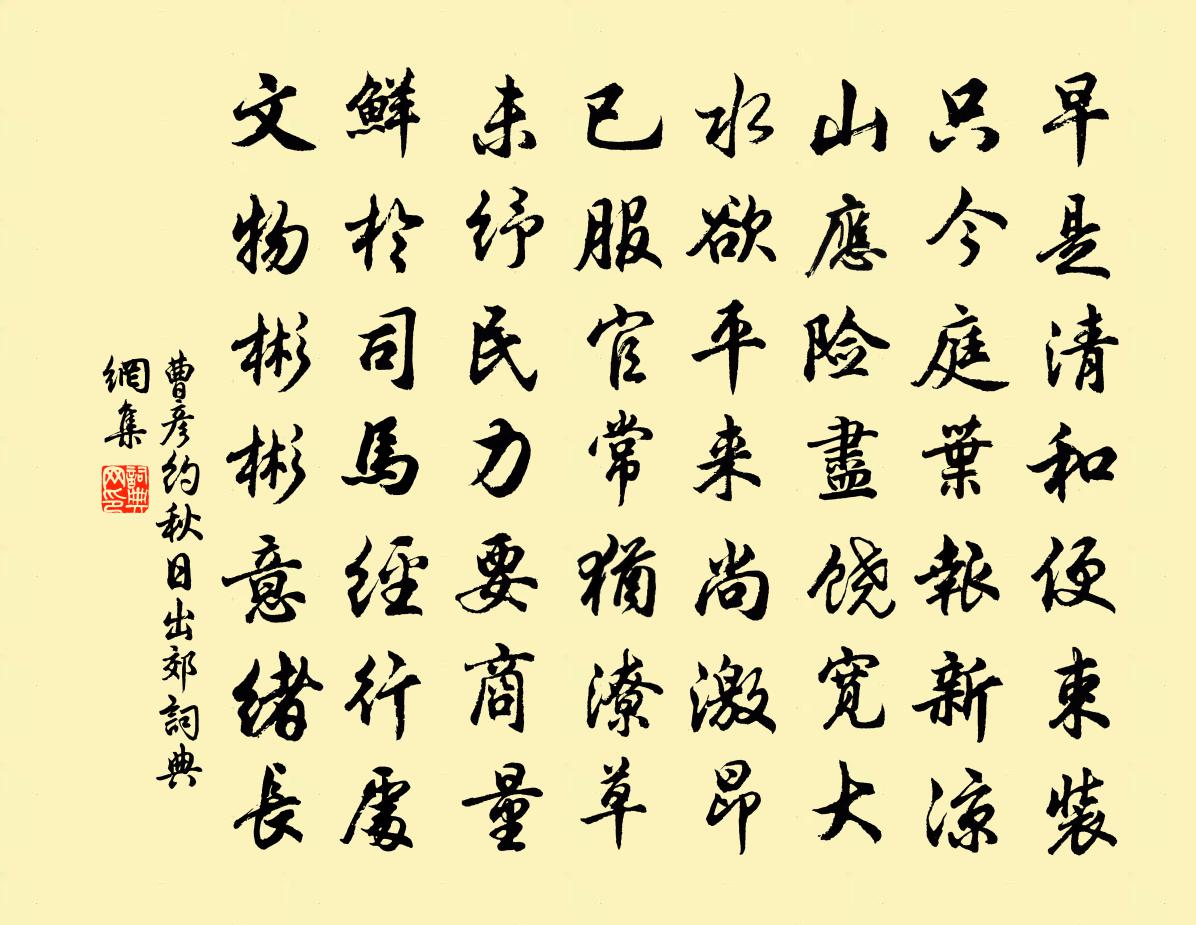 早是清和便束裝
只今庭葉報新涼
山應險盡饒寬大
水欲平来尚激昂
已服官常猶潦草
未紓民力要商量
鮮於司馬經行處
文物彬彬意緒長
曹彦約秋日出郊詞典
網集
詞典
网印